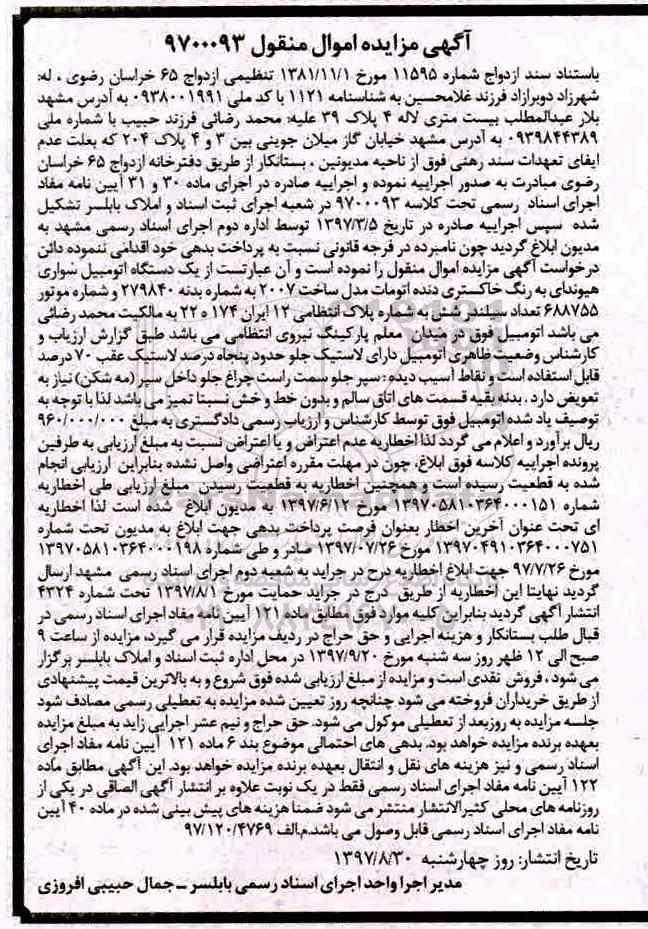 آگهی مزایده اموال منقول ۹۷۰۰۰۹۳
باستناد سند ازدواج شماره ۱۱۵۹۵ مورخ ۱۳۸۱/۱۱/۱ تنظیمی ازدواج ۶۵ خراسان رضوی ، له:
شهرزاد دوبرازاد فرزند غلامحسین به شناسنامه ۱۱۲۱ با کد ملی ۰۹۳۸۰۰۱۹۹۱ به آدرس مشهد
بلار عبدالمطلب بیست متری لاله ۴ پلاک ۳۹ علیه: محمد رضائی فرزند حبیب با شماره ملی
۰۹۳۹۸۴۴۳۸۹ به آدرس مشهد خیابان گاز میلان جوینی بین ۳ و ۴ پلاک ۲۰۴ که بعلت عدم
ایفای تعهدات سند رهنی فوق از ناحیه مدیونین ، بستانکار از طریق دفترخانه ازدواج ۶۵ خراسان
رضوی مبادرت به صدور اجراییه نموده و اجراییه صادره در اجرای ماده ۳۰ و ۳۱ آیین نامه مفاد
اجرای اسناد رسمی تحت کلاسه ۹۷۰۰۰۹۳ در شعبه اجرای ثبت اسناد و املاک بابلسر تشکیل
شده سپس اجراییه صادره در تاریخ ۱۳۹۷/۳/۵ توسط اداره دوم اجرای اسناد رسمی مشهد به
مدیون ابلاغ گردید چون نامبرده در فرجه قانونی نسبت به پرداخت بدهی خود اقدامی ننموده دائن
درخواست آگهی مزایده اموال منقول را نموده است و آن عبارتست از یک دستگاه اتومبیل سواری
هیوندای به رنگ خاکستری دنده اتومات مدل ساخت ۲۰۰۷ به شماره بدنه ۲۷۹۸۴۰ و شماره موتور
۶۸۸۷۵۵ تعداد سیلندر شش به شماره پلاک انتظامی ۱۲ ایران ۱۷۴ ه ۲۲ به مالکیت محمد رضائی
می باشد اتومبیل فوق در میدان معلم پارکینگ نیروی انتظامی می باشد طبق گزارش ارزیاب و
کارشناس وضعیت ظاهری اتومبیل دارای لاستیک جلو حدود پنجاه درصد لاستیک عقب ۷۰ درصد
قابل استفاده است و نقاط آسیب دیده : سپر جلو سمت راست چراغ جلو داخل سپر (مه شکن) نیاز به
تعویض دارد . بدنه بقیه قسمت های اتاق سالم و بدون خط و خش نسبتا تمیز می باشد لذا با توجه به
توصیف یاد شده اتومبیل فوق توسط کارشناس و ارزیاب رسمی دادگستری به مبلغ ۹۶۰/۰۰۰/۰۰۰
ریال برآورد و اعلام می گردد لذا اخطاریه عدم اعتراض و یا اعتراض نسبت به مبلغ ارزیابی به طرفین
پرونده اجراییه کلاسه فوق ابلاغ، چون در مهلت مقرره اعتراضی واصل نشده بنابراین ارزیابی انجام
شده به قطعیت رسیده است و همچنین اخطاریه به قطعیت رسیدن مبلغ ارزیابی طی اخطاریه
شماره ۱۳۹۷۰۵۸۱۰۳۶۴۰۰۰۱۵۱ مورخ ۱۳۹۷/۶/۱۲ به مدیون ابلاغ شده است لذا اخطاریه
ای تحت عنوان آخرین اخطار بعنوان فرصت پرداخت بدهی جهت ابلاغ به مدیون تحت شماره
۱۳۹۷۰۴۹۱۰۳۶۴۰۰۰۷۵۱ مورخ ۱۳۹۷/۰۷/۲۶ صادر و طی شماره ۱۳۹۷۰۵۸۱۰۳۶۴۰۰۰۱۹۸
مورخ ۹۷/۷/۲۶ جهت ابلاغ اخطاریه درج در جراید به شعبه دوم اجرای اسناد رسمی مشهد ارسال
گردید نهایتا این اخطاریه از طریق درج در جراید حمایت مورخ ۱۳۹۷/۸/۱ تحت شماره ۴۳۲۴
انتشار آگهی گردید بنابراین کلیه موارد فوق مطابق ماده ۱۲۱ آیین نامه مفاد اجرای اسناد رسمی در
قبال طلب بستانکار و هزینه اجرایی و حق حراج در ردیف مزایده قرار می گیرد، مزایده از ساعت ۹
صبح الی ۱۲ ظهر روز سه شنبه مورخ ۱۳۹۷/۹/۲۰ در محل اداره ثبت اسناد و املاک بابلسر برگزار
می شود ، فروش نقدی است و مزایده از مبلغ ارزیابی شده فوق شروع و به بالاترین قیمت پیشنهادی
از طریق خریداران فروخته می شود چنانچه روز تعیین شده مزایده به تعطیلی رسمی مصادف شود
جلسه مزایده به روزبعد از تعطیلی موکول می شود. حق حراج و نیم عشر اجرایی زاید به مبلغ مزایده
بعهده برنده مزایده خواهد بود. بدهی های احتمالی موضوع بند ۶ ماده ۱۲۱ آیین نامه مفاد اجرای
اسناد رسمی و نیز هزینه های نقل و انتقال بعهده برنده مزایده خواهد بود. این آگهی مطابق ماده
۱۲۲ آیین نامه مفاد اجرای اسناد رسمی فقط در یک نوبت علاوه بر انتشار آگهی الصاقی در یکی از
روزنامه های محلی کثیرالانتشار منتشر می شود ضمنا هزینه های پیش بینی شده در ماده ۴۰ آیین
نامه مفاد اجرای اسناد رسمی قابل وصول می باشد.م.الف ۹۷/۱۲۰/۴۷۶۹
تاریخ انتشار: روز چهارشنبه ۱۳۹۷/۸/۳۰
مدیر اجرا واحد اجرای اسناد رسمی بابلسر – جمال حبیبی افروزی